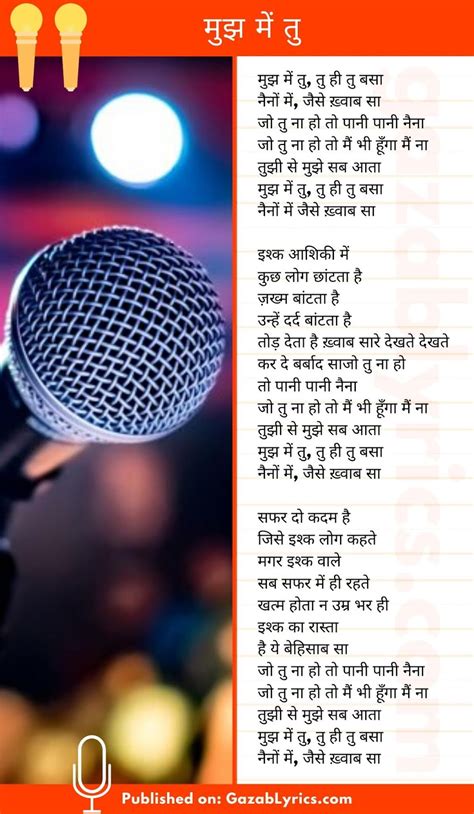 मुझ में तु
मुझ में तु, तु ही तु बसा
नैनों में, जैसे ख़्वाब सा
जो तु ना हो तो पानी पानी नैना
जो तु ना हो तो मैं भी हूँगा मैं ना
तुझी से मुझे सब आता
मुझ में तु, तु ही तु बसा
नैनों में जैसे ख़्वाब सा
इश्क आशिकी में
कुछ लोग छांटता है
ज़ख्म बांटता है
उन्हें दर्द बांटता है
तोड़ देता है ख़्वाब सारे देखते देखते
कर दे बर्बाद साजो तु ना हो
तो पानी पानी नैना
जो तु ना हो तो मैं भी हूँगा मैं ना
तुझी से मुझे सब आता
मुझ में तु, तु ही तु बसा
नैनों में, जैसे ख़्वाब सा
सफर दो कदम है
जिसे इश्क लोग कहते
मगर इश्क वाले
सब सफर में ही रहते
खत्म होता न उम्र भर ही
इश्क का रास्ता
है ये बेहिसाब सा
जो तु ना हो तो पानी पानी नैना
जो तु ना हो तो मैं भी हूँगा मैं ना
तुझी से मुझे सब आता
मुझ में तु, तु ही तु बसा
नैनों में, जैसे ख़्वाब सा
gazablyrics.com
Published on: GazabLyrics.com